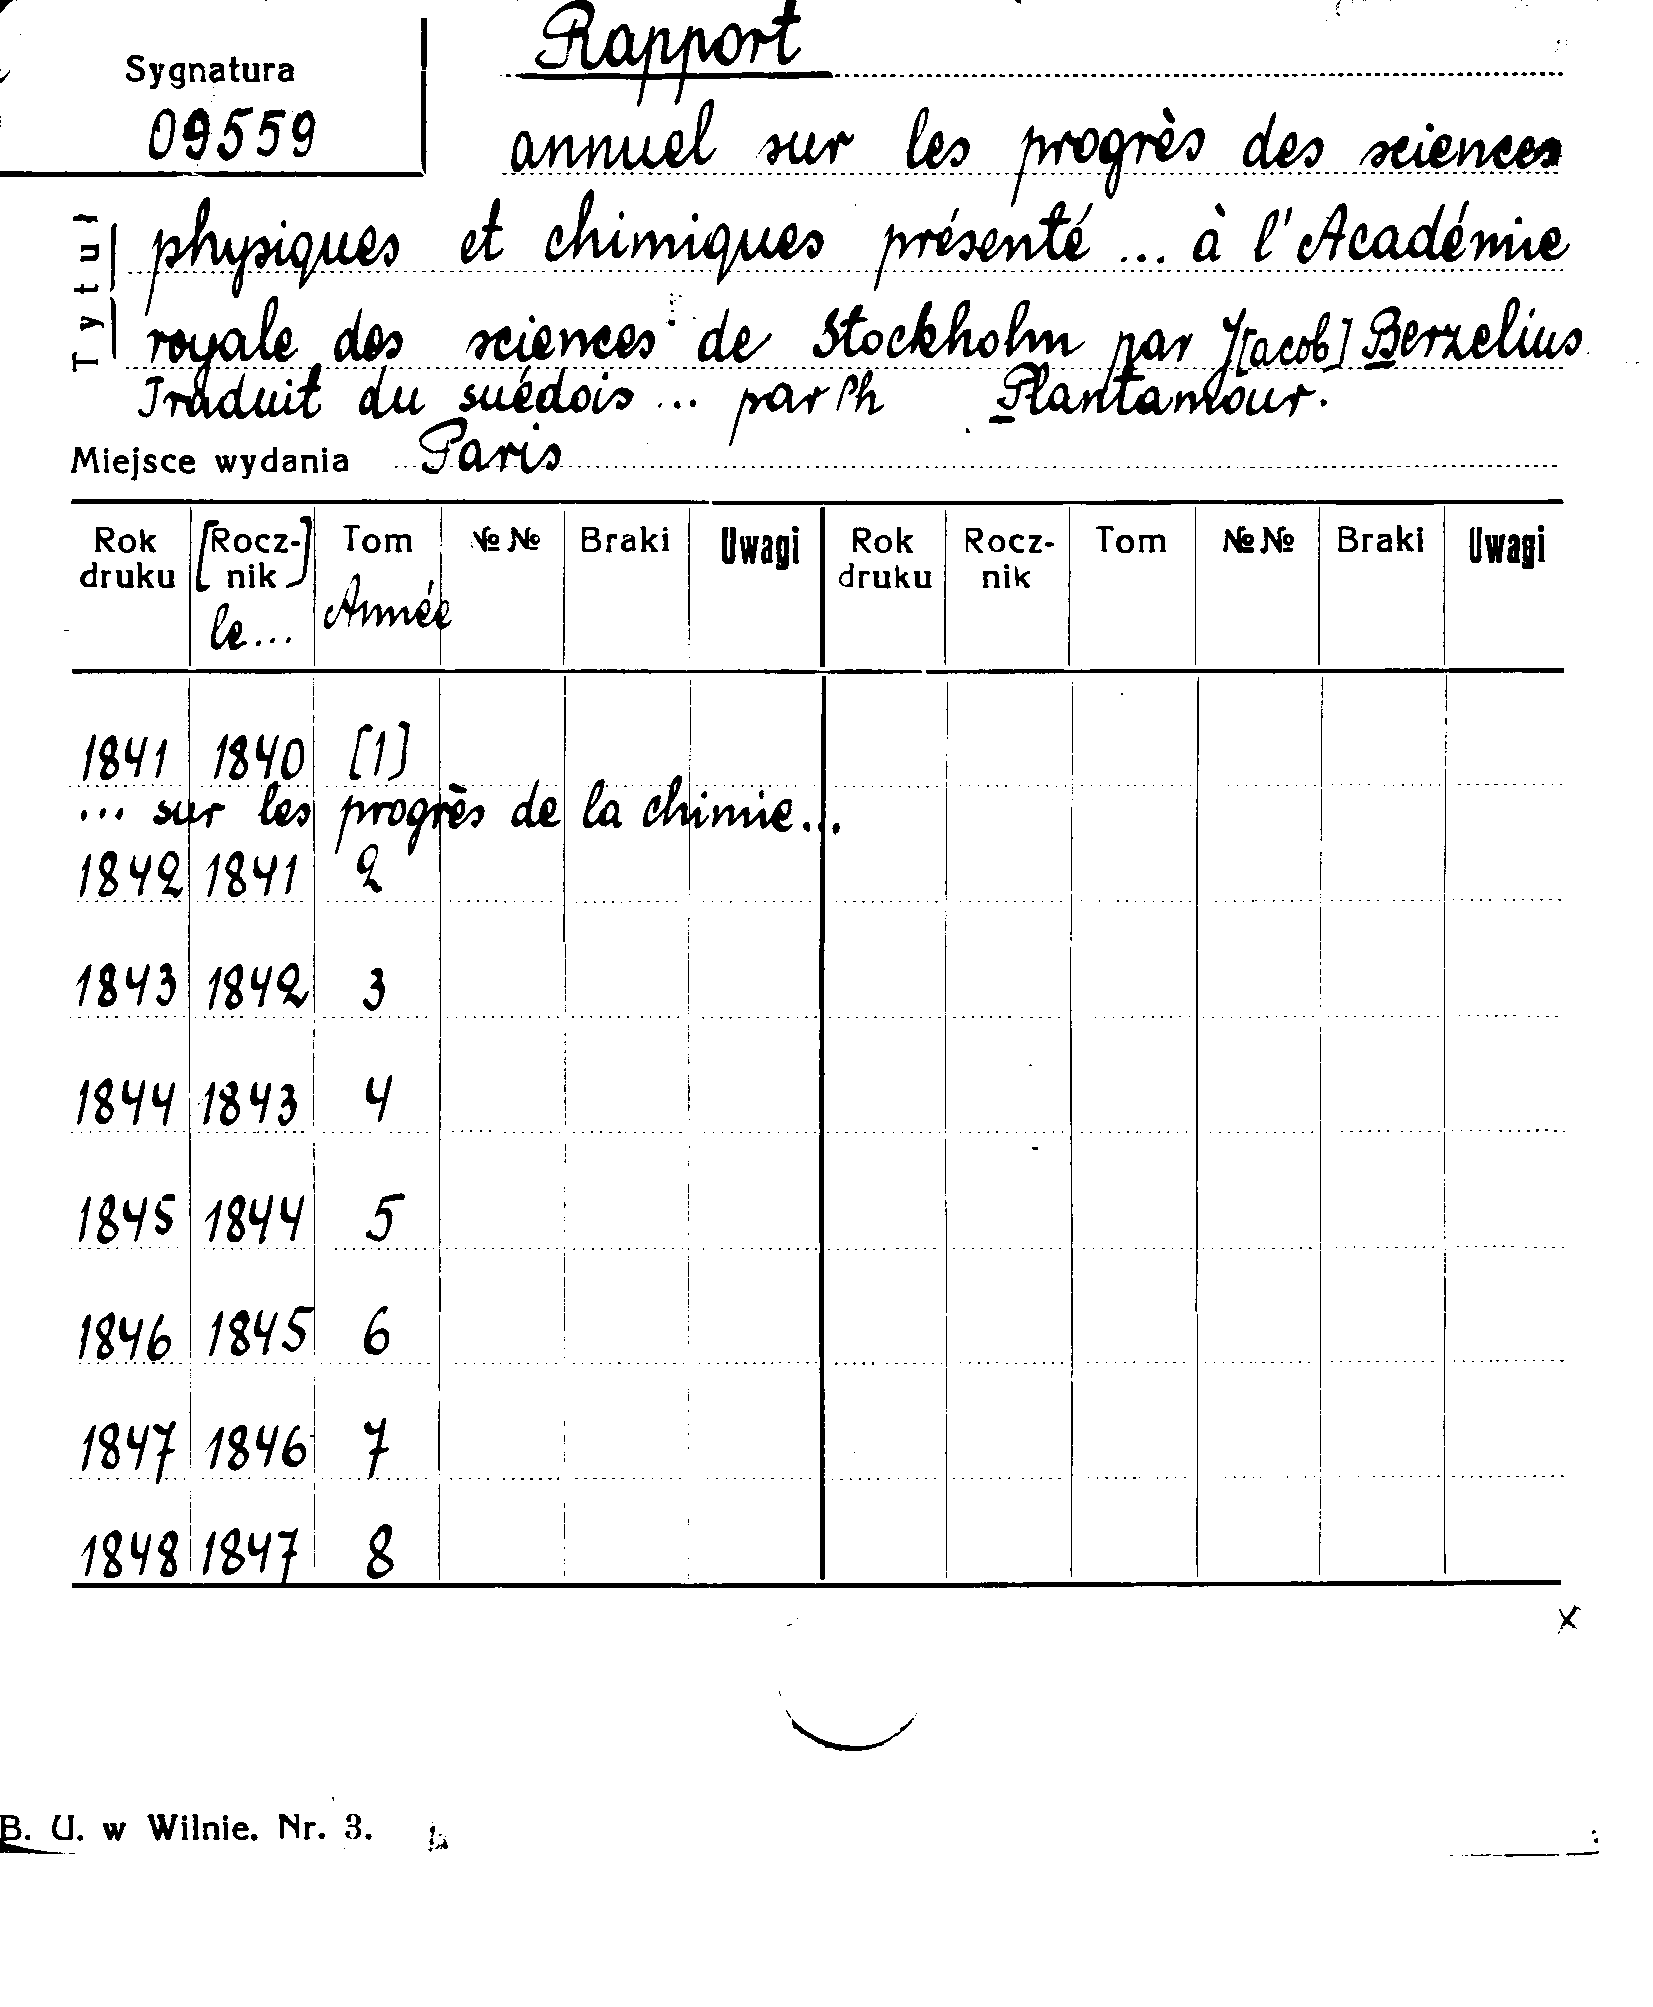 Rapport
Sygnatura
09559
annuel sur les progrès des sciences
Tytuł
physiques et chimiques présenté ... à l'Académie
royale des sciences de Stockholm par J[acob] Berzelius
Traduit du suédois ... par Ph Plantamour.
Miejsce wydania Paris
Rok druku [Rocz-nik] Tom №№ Braki Uwagi Rok druku Rocz-nik Tom №№ Braki Uwagi
le... Année
1841 1840 [1]
... sur les progrès de la chimie...
1842 1841 2
1843 1842 3
1844 1843 4
1845 1844 5
1846 1845 6
1847 1846 7
1848 1847 8
x
B. U. w Wilnie. Nr. 3.